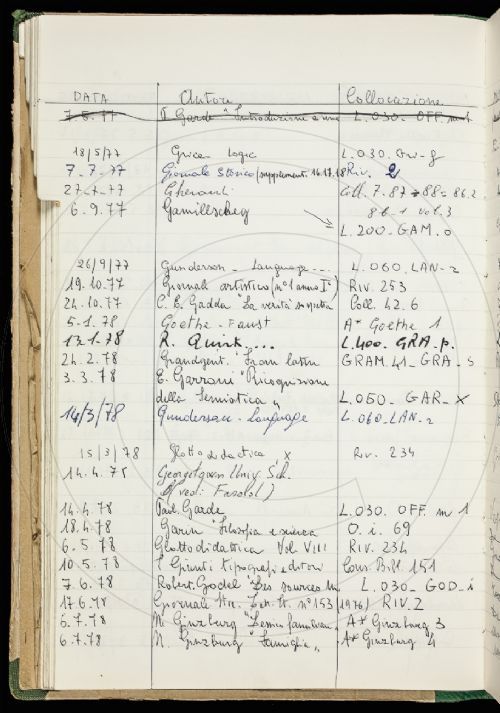 DATA Autore Collocazione
7.6.77 P. Garde "Introduzione a une L.030. OFF. m 1
18/5/77 Grice - Logic L.030.
7-7-77 Giornale Storico (supplement. 16.17.18 Riv. 2
27-7-77 Gherardi Coll. 7.87 88 86.2
6.9.77 Gamillscheg 86-1 vol. 3
L.200_GAM.0
26/9/77 Gunderson - Language.... L.060.LAN-2
19.10.77 Giornali artistico (n°1 anno I°) Riv 253
24.10.77 C. E. Gadda "La verità sospetta Coll. 42.6
5-1.78 Goethe - Faust A* Goethe 1
13.1.78 R. Quirk.... L.400. GRA.p.
24.2.78 Grandgent. GRAM.41_GRA_S
3.3.78 E. Garroni "Ricognizione
della Semiotica" L.050_GAR_X
14/3/78 Gunderson - Language L.060_LAN_2
15/3/78 Glottodidattica, X Riv. 234
14.4.78 Georgetown Univ. Sch.
(vedi: Fasold)
14.4.78 Paul Garde L.030. OFF. m 1
18.4.78 Garin "Filosofia e scienza O.i. 69
6.5 78 Glottodidattica Vol VIII RIV. 234
10.5.78 I Giunti tipografi editori Cons Bibl. 151
7.6.78 Robert Godel "Les sources L.030_GOD_i
17.6.78 Giornale Sto. Lett. It. n°153 (1976) RIV.2
6.7.78 N. Ginzburg "Lessico famigliare A* Ginzburg 3
6.7.78 N. Ginzburg "Famiglia" A* Ginzburg 4